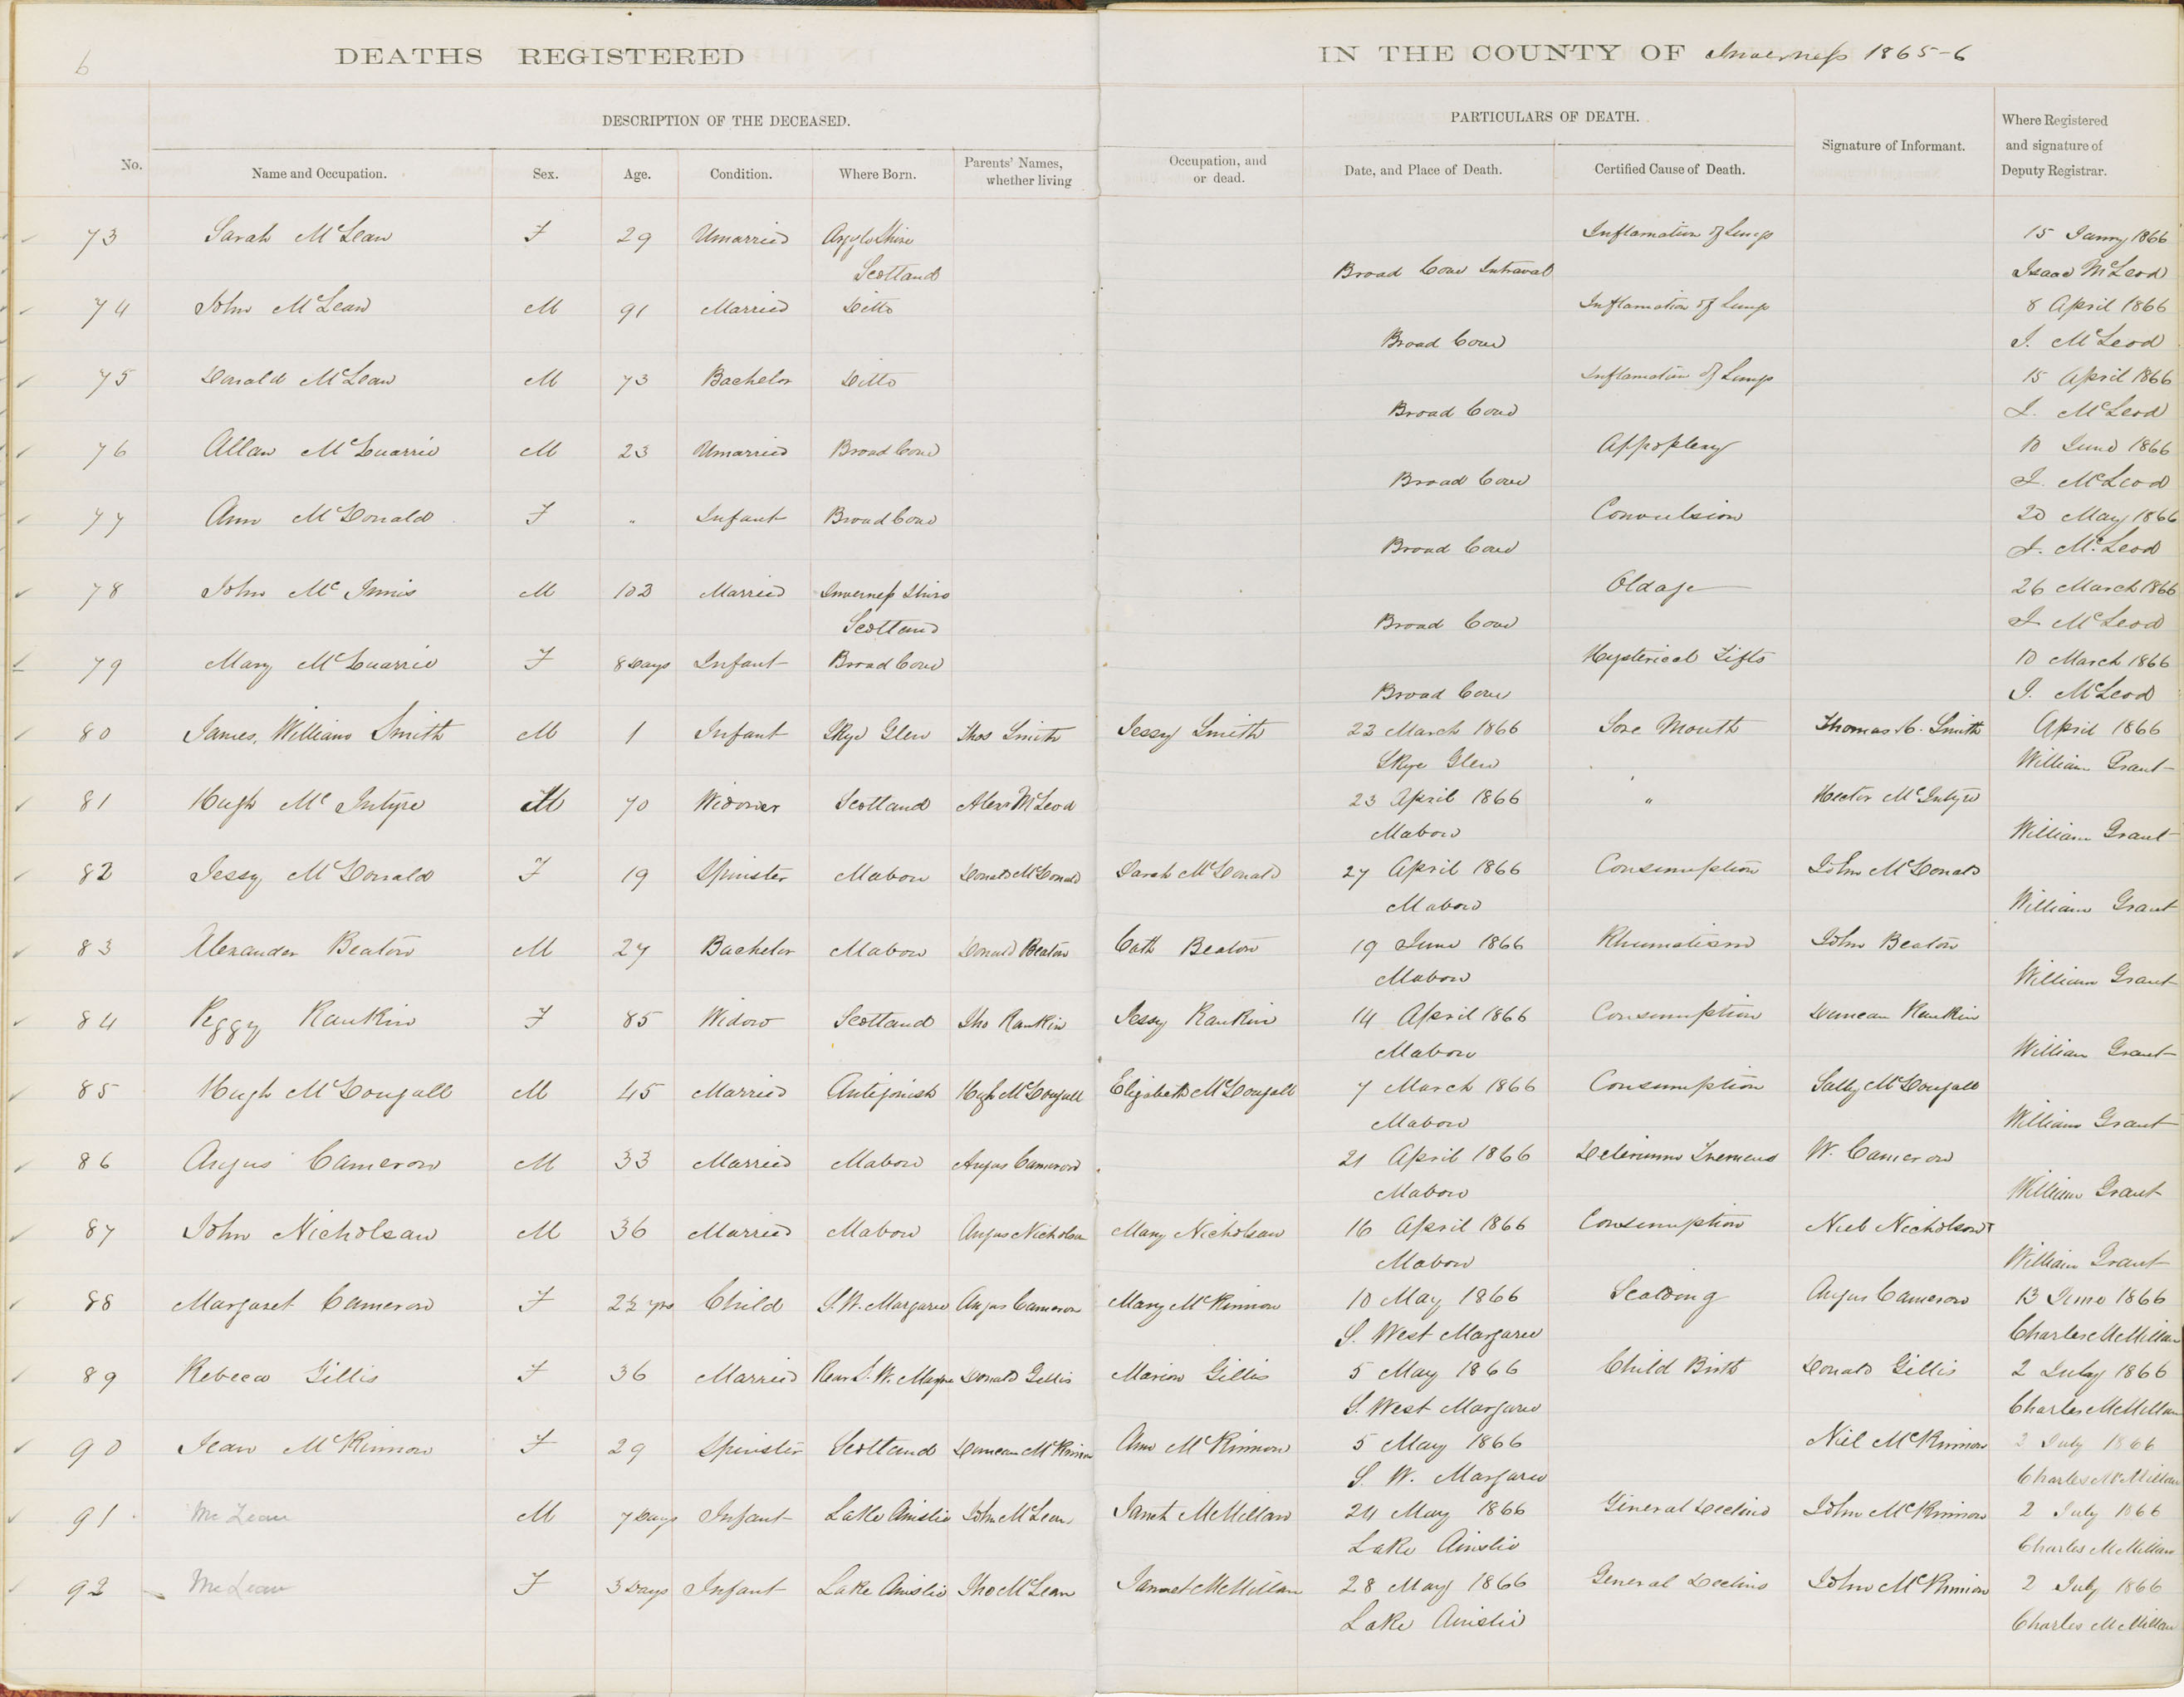 6
DEATHS REGISTERED IN THE COUNTY OF Inverness 1865-6
DESCRIPTION OF THE DECEASED. PARTICULARS OF DEATH.
No. Name and Occupation. Sex. Age. Condition. Where Born. Parents' Names, whether living Occupation, and or dead. Date, and Place of Death. Certified Cause of Death. Signature of Informant. Where Registered and signature of Deputy Registrar.
73 Sarah McLean F 29 Unmarried Argyle Shire Inflamation of Lungs 15 Janry 1866
Scotland Broad Cove Intraval Isaac McLeod
74 John McLean M 91 Married Ditto Inflamation of Lungs 8 April 1866
Broad Cove I. McLeod
75 Donald McLean M 73 Bachelor Ditto Inflamation of Lungs 15 April 1866
Broad Cove I. McLeod
76 Allan McQuarrie M 23 Unmarried Broad Cove Appoplexy 10 June 1866
Broad Cove I. McLeod
77 Ann McDonald F " Infant Broad Cove Convulsion 20 May 1866
Broad Cove I. McLeod
78 John McInnis M 102 Married Inverness Shire Old age 26 March 1866
Scotland Broad Cove I McLeod
79 Mary McQuarrie F 8 Days Infant Broad Cove Hysterical Fifts 10 March 1866
Broad Cove I. McLeod
80 James, William Smith M 1 Infant Skye Glen Thos Smith Jessy Smith 22 March 1866 Sore Mouth Thomas Smith April 1866
Skye Glen William Grant
81 Hugh McIntyre M 70 Widower Scotland Alexr McLeod 23 April 1866 " Hector McIntyre
Mabow William Grant
82 Jessy McDonald F 19 Spinster Mabow Donald McDonald Sarah McDonald 27 April 1866 Consumption John McDonald
Mabow William Grant
83 Alexander Beaton M 27 Bachelor Mabow Donald Beaton Cath Beaton 19 June 1866 Rhumatism John Beaton
Mabow William Grant
84 Peggy Rankin F 85 Widow Scotland Jho Rankin Jessy Rankin 14 April 1866 Consumption Duncan Rankin
Mabow William Grant
85 Hugh McDougall M 45 Married Antigonish Hugh McDougall Elizabeth McDougall 7 March 1866 Consumption Sally McDougall
Mabow William Grant
86 Angus Cameron M 33 Married Mabow Angus Cameron 21 April 1866 Delerium Tremens W. Cameron
Mabow William Grant
87 John Nicholsan M 36 Married Mabow Angus Nicholson Mary Nicholsan 16 April 1866 Consumption Nicholson
Mabow William Grant
88 Margaret Cameron F 2½ yrs Child S.W. Margaree Angus Cameron Mary McKinnon 10 May 1866 Scalding Angus Cameron 13 June 1866
S. West Margaree Charles McMillan
89 Rebeca Gillis F 36 Married Rear S.W. Marge Donald Gillis Marion Gillis 5 May 1866 Child Birth Donald Gillis 2 July 1866
S. West Margaree Charles McMillan
90 Jean McKinnon F 29 Spinster Scotland Duncan McKinnon Ann McKinnon 5 May 1866 Niel McKinnon 2 July 1866
S. W. Margaree Charles McMillan
91 McLean M 7 Days Infant Lake Ainslie John McLean Janet McMillan 24 May 1866 General Decline John McKinnon 2 July 1866
Lake Ainslie Charles McMillan
92 McLean F 3 Days Infant Lake Ainslie Jho McLean Jannet McMillan 28 May 1866 General Decline John McKinnon 2 July 1866
Lake Ainslie Charles McMillan